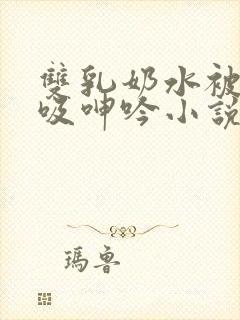 雙乳奶水被
吸呻吟小說
瑪魯